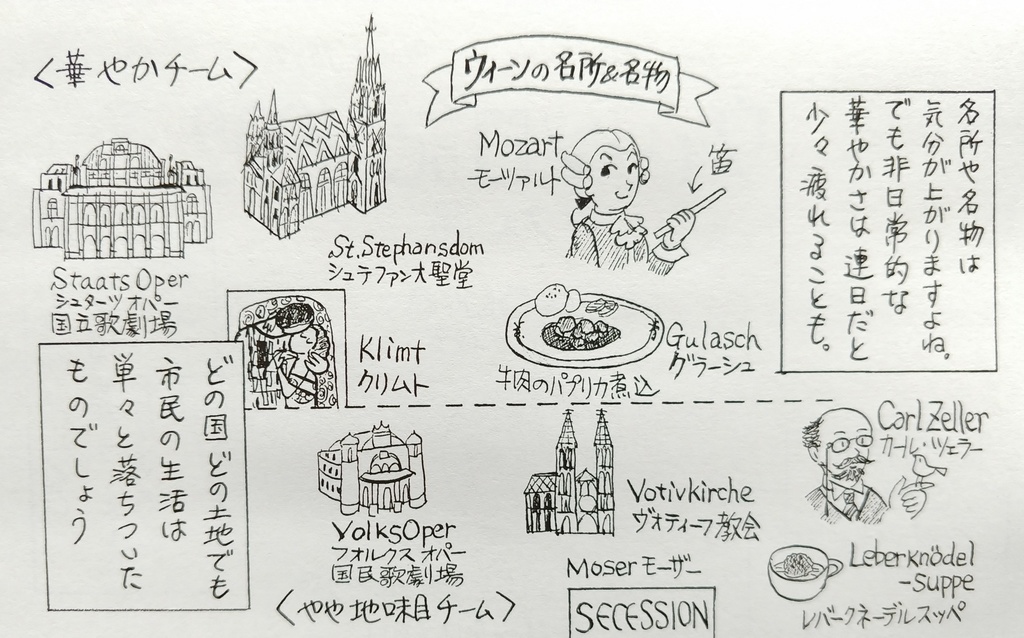 ウィーンの名所&名物
〈華やかチーム〉
名所や名物は
気分が上がりますよね。
でも非日常的な
華やかさは連日だと
少々疲れることも。
Staats Oper
シュターツ オパー
国立歌劇場
St.Stephansdom
シュテファン大聖堂
Mozart
モーツァルト
笛
Klimt
クリムト
Gulasch
グラーシュ
牛肉のパプリカ煮込
どの国どの土地でも
市民の生活は
単々と落ちついた
ものでしょう
VolksOper
フォルクス オパー
国民歌劇場
Votivkirche
ヴォティーフ教会
Carl Zeller
カール・ツェラー
Moser モーザー
SECESSION
Leberknödel
-suppe
レバークネーデルスッペ
〈やや地味目チーム〉